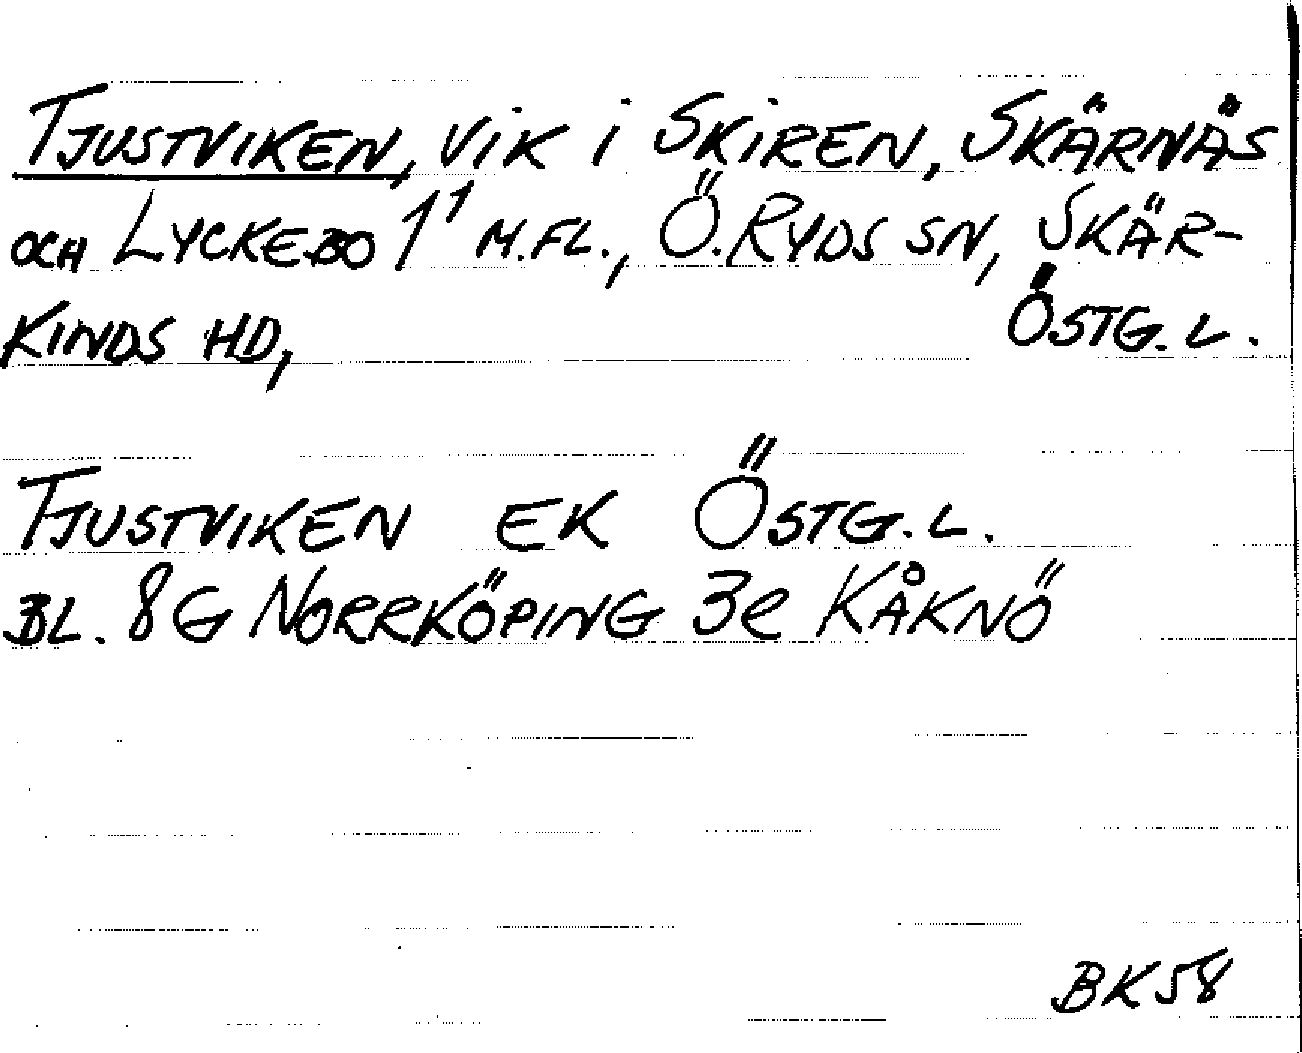 TJUSTVIKEN, VIK I SKIREN, SKÄRNÄS
OCH LYCKEBO 1¹ M.FL., Ö. RYDS SN, SKÄR-
KINDS HD, ÖSTG. L.
TJUSTVIKEN EK ÖSTG. L.
BL. 8G NORRKÖPING 3e KÅKNÖ
BK58